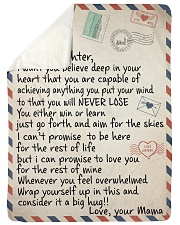 I want you believe deep in your
heart that you are capable of
achieving anything you put your mind
to that you will NEVER LOSE
You either win or learn
just go forth and aim for the skies
I can't promise to be here
for the rest of life
but i can promise to love you
for the rest of mine
Whenever you feel overwhelmed
Wrap yourself up in this and
consider it a big hug!!
Love, your Mama